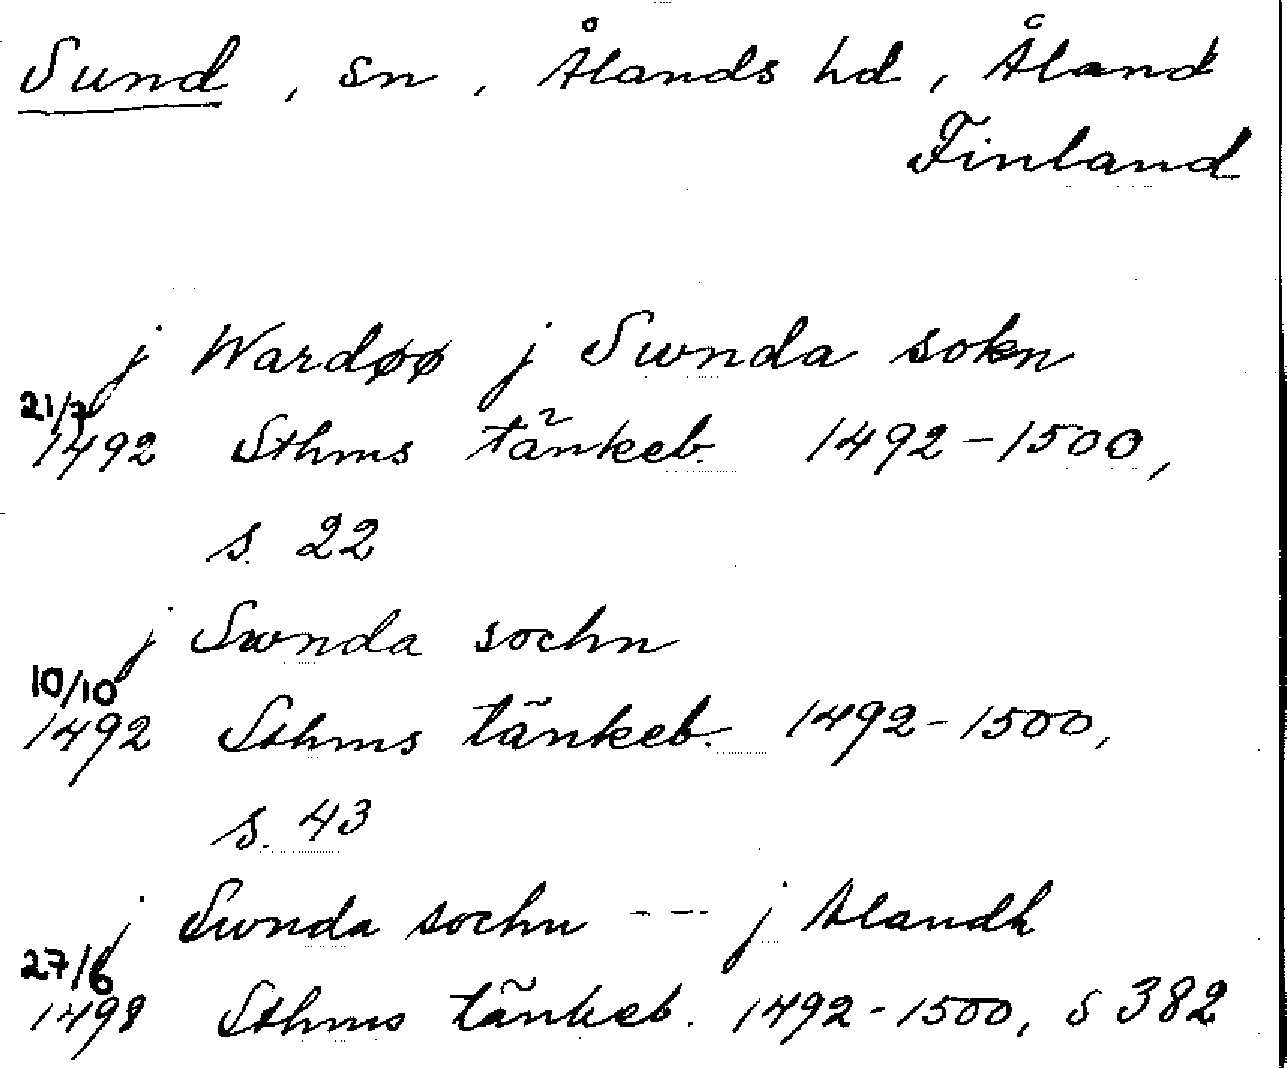 Sund, sn, Ålands hd, Åland
Finland
j Wardøø j Swnda sokn
21/7
1492 Sthms tänkeb. 1492-1500,
s. 22
j Swnda sochn
10/10
1492 Sthms tänkeb. 1492-1500,
s. 43
j Swnda sochn --- j Alandh
27/6
1498 Sthms tänkeb. 1492-1500, s 382